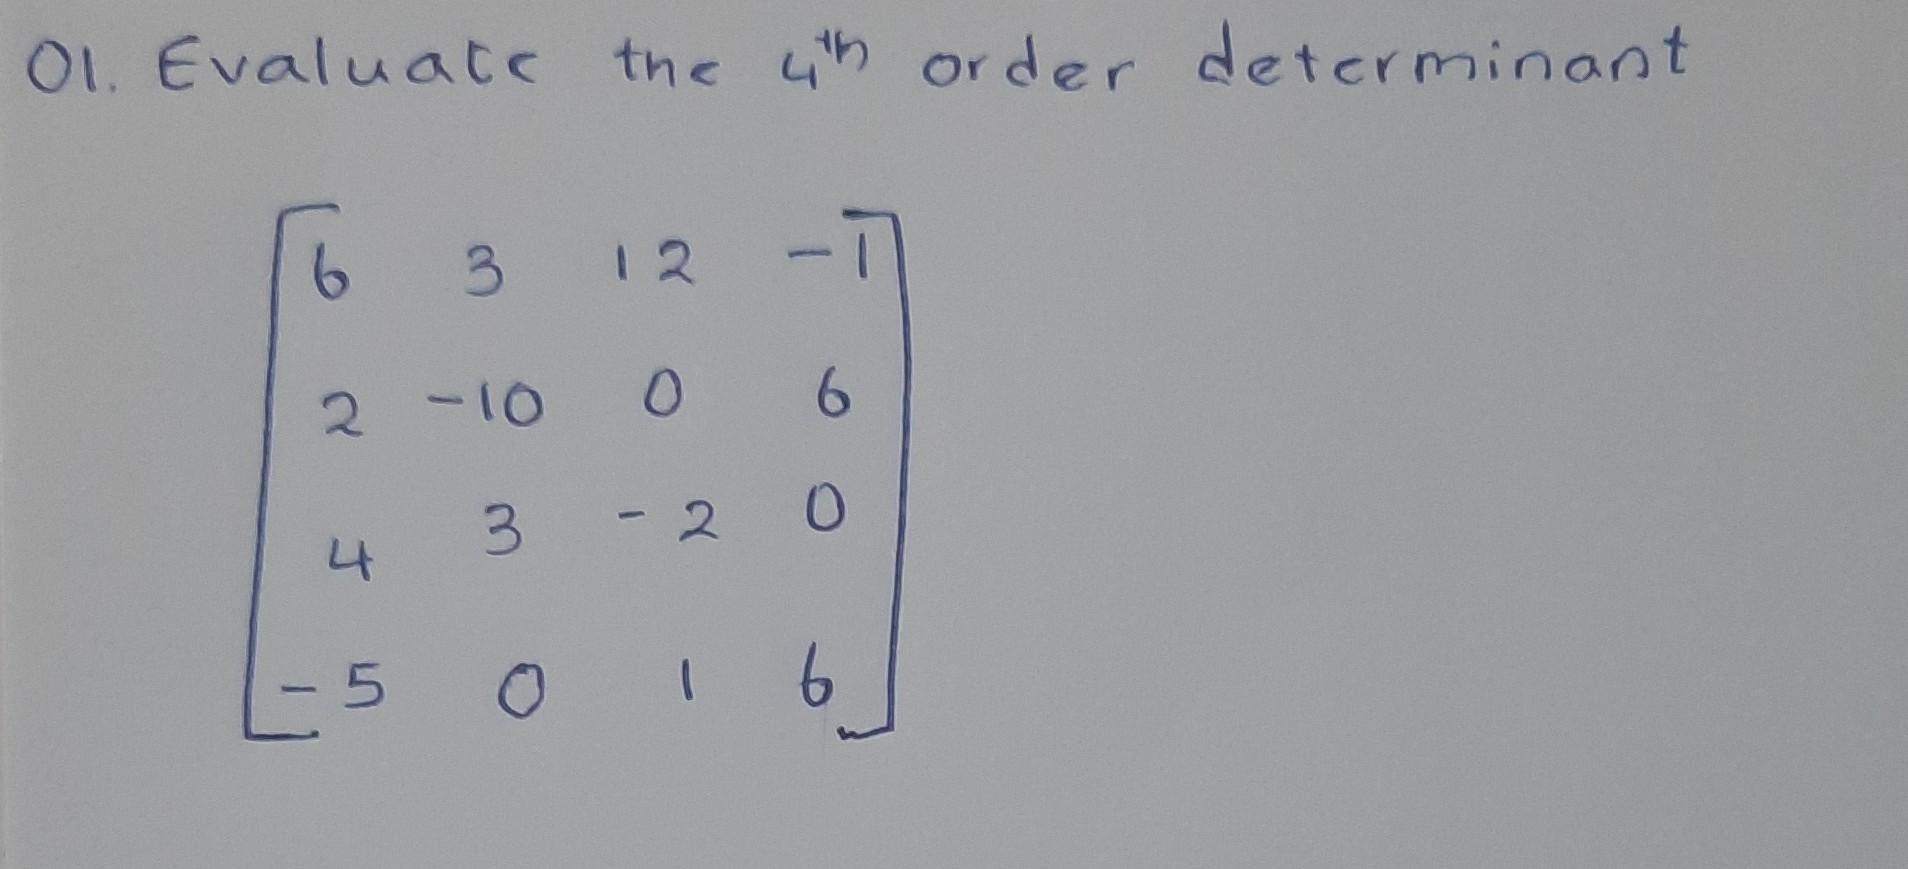 01. Evaluate the 4th order determinant
6 3 12 -1
2 -10 0 6
4 3 -2 0
-5 0 1 6